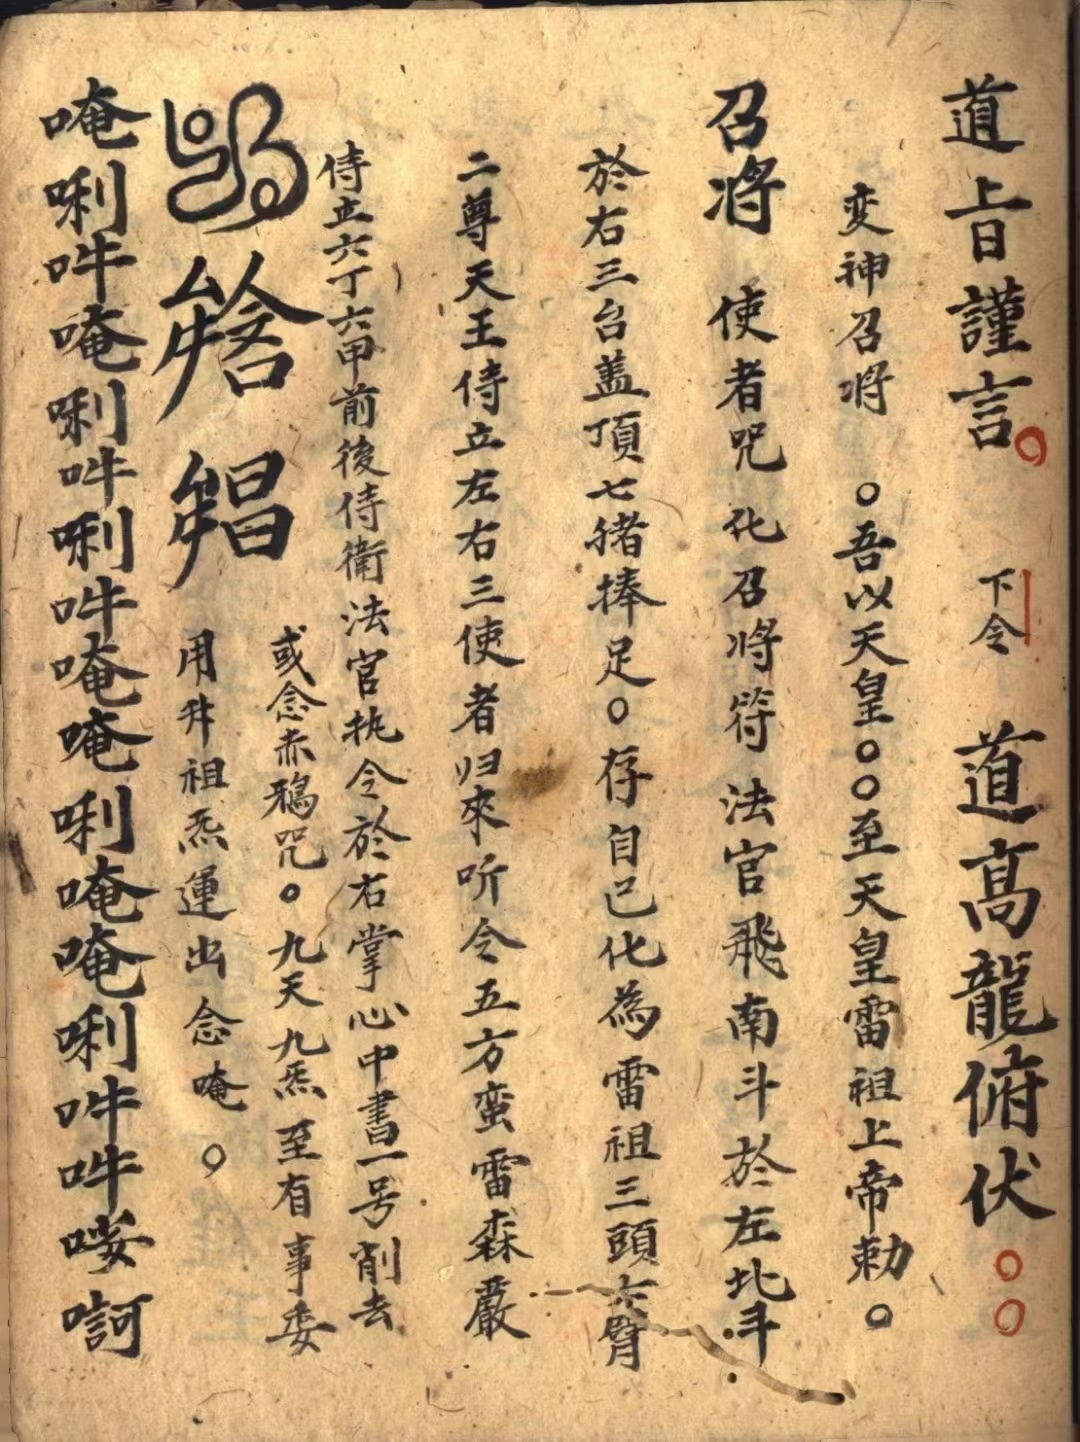 道上旨謹言。下令 道高龍俯伏。。
変神召将 。吾以天皇。。至天皇雷祖上帝勅。
召将 使者咒 化召将符 法官飛南斗於左北斗
於右三台盖頂七猪捧足。存自己化為雷祖三頭六臂
二尊天王侍立左右三使者归來听令五方蛮雷森嚴
侍立六丁六甲前後侍衛法官执令於右掌心中書一号削去
或念赤鴉咒。九天九炁至有事委
用 祖炁運出念唵。
唵唎吽唵唎吽唎吽唵唵唎唵唵唎吽吽㖮訶